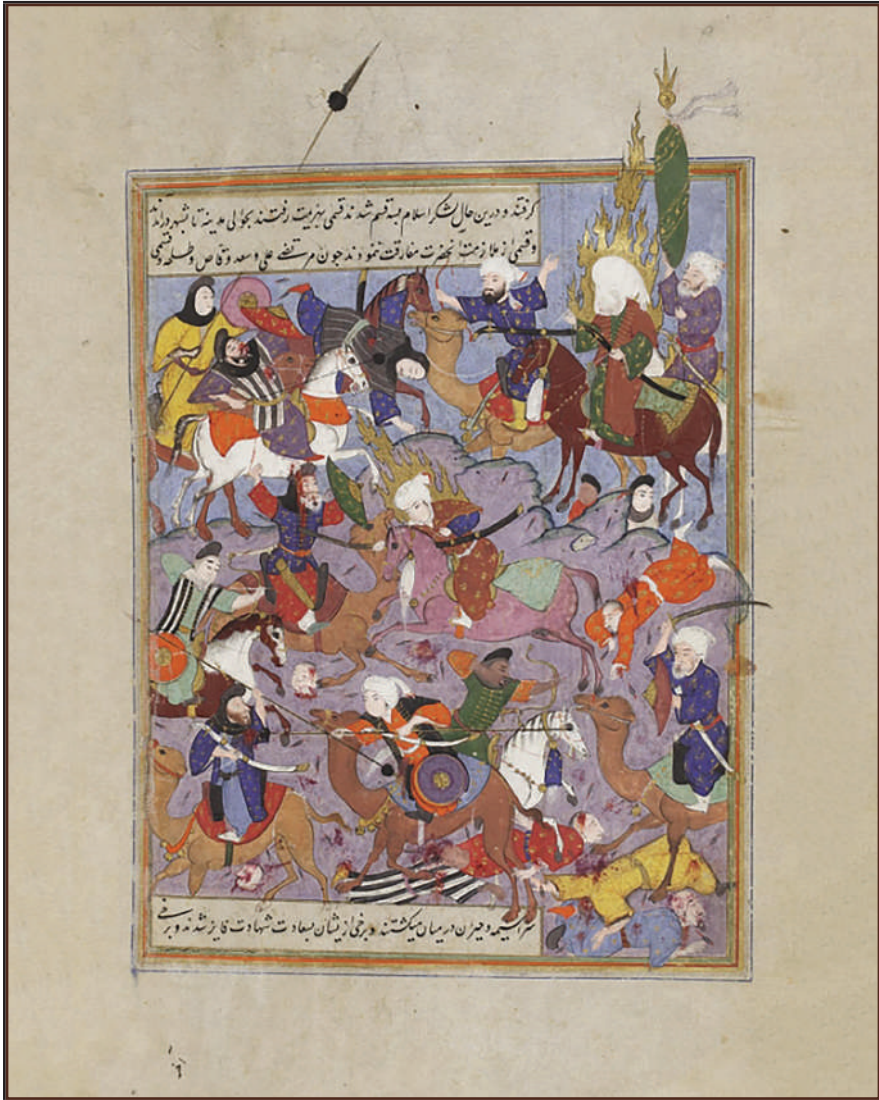 گرفتند و درین حال لشکر اسلام سه قسم شدند قسمی بهزیمت رفتند بحوالی مدینه تا بشهر درآمدند
و قسمی از ملازمت آنحضرت مفارقت ننمودند چون مرتضی علی و سعد وقاص و طلحه و قسمی
سراسیمه و حیران در میان میکشتند و برخی از یشان بسعادت شهادت فایز شدند و برخی